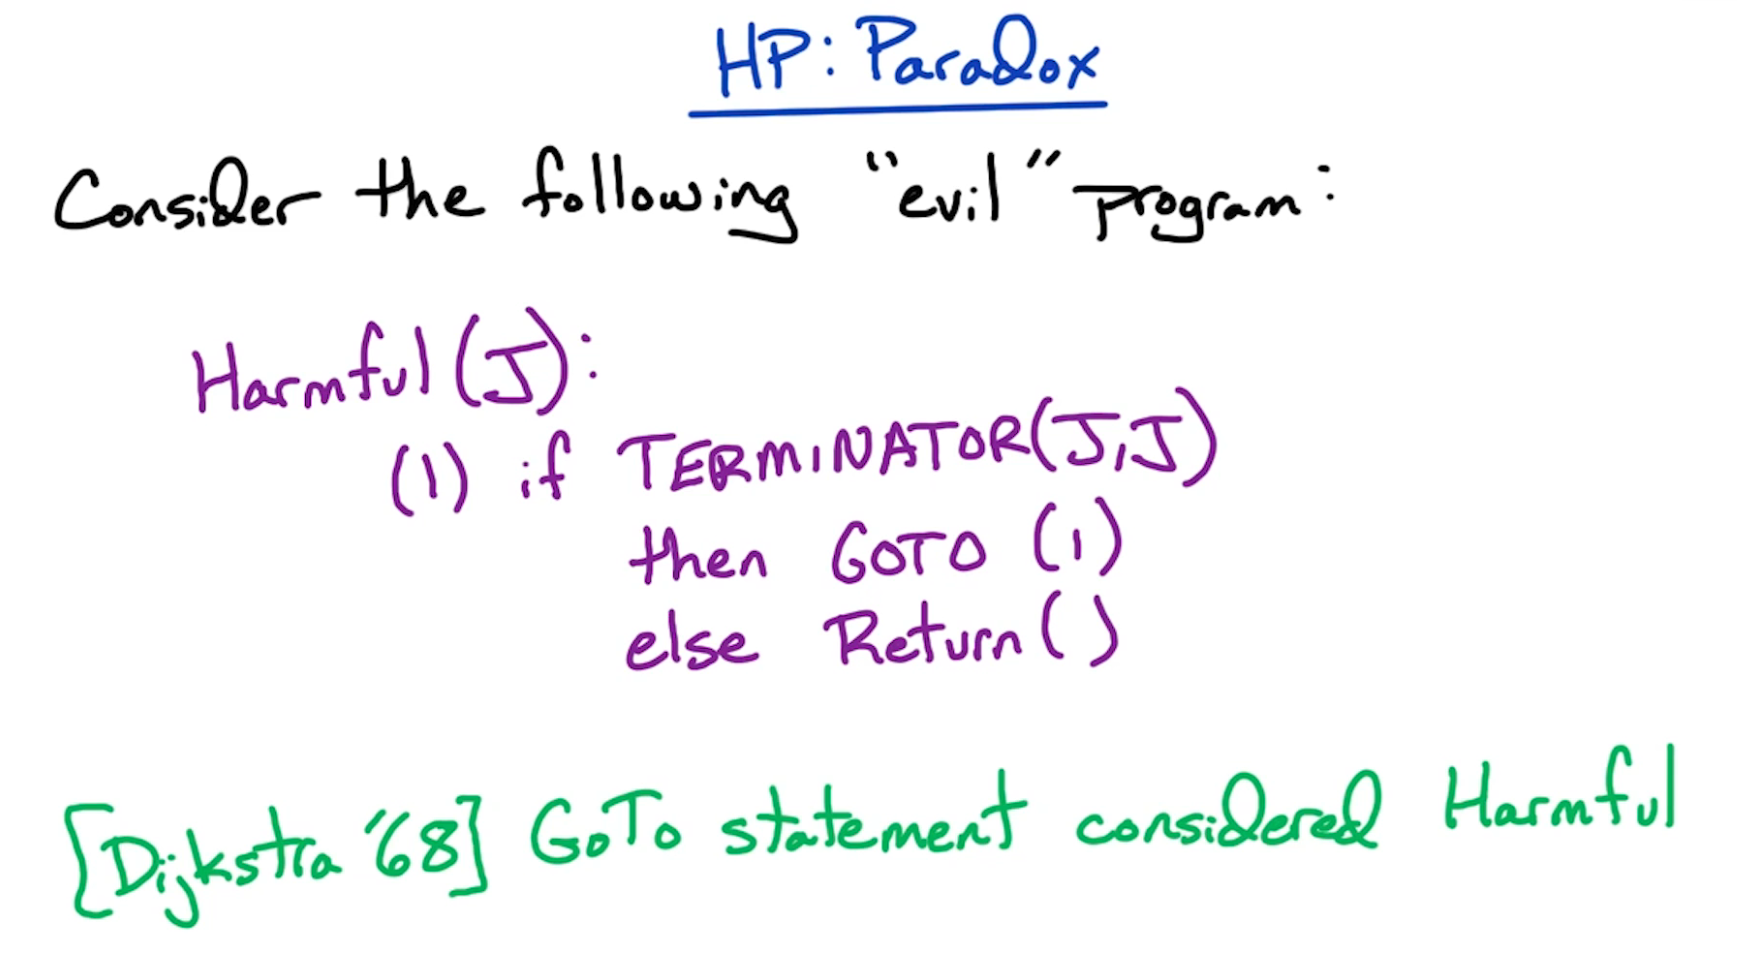 HP: Paradox
Consider the following "evil" program:
Harmful(J):
(1) if TERMINATOR(J,J)
then GOTO (1)
else Return()
[Dijkstra '68] GoTo statement considered Harmful